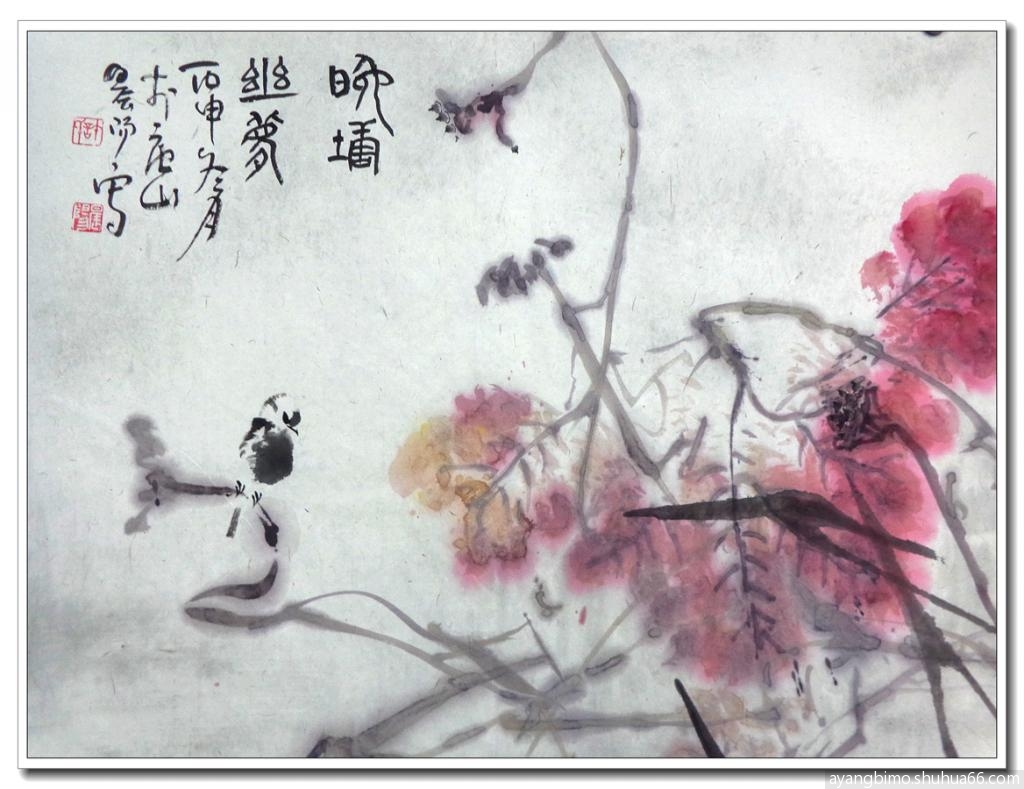 晚塘
幽夢
丙申冬月
於唐山
写
ayangbimo.shuhua66.com